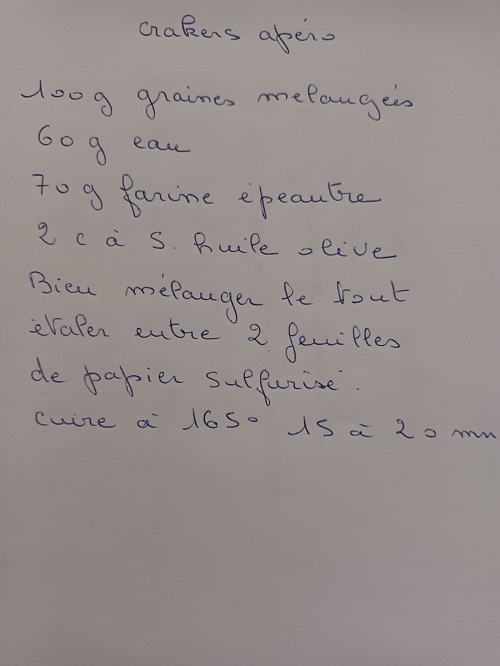 crakers apéro
100g graines melangées
60g eau
70g farine épeautre
2 c à S. huile olive
Bien mélanger le tout
étaler entre 2 feuilles
de papier sulfurisé.
cuire à 165° 15 à 20 mn